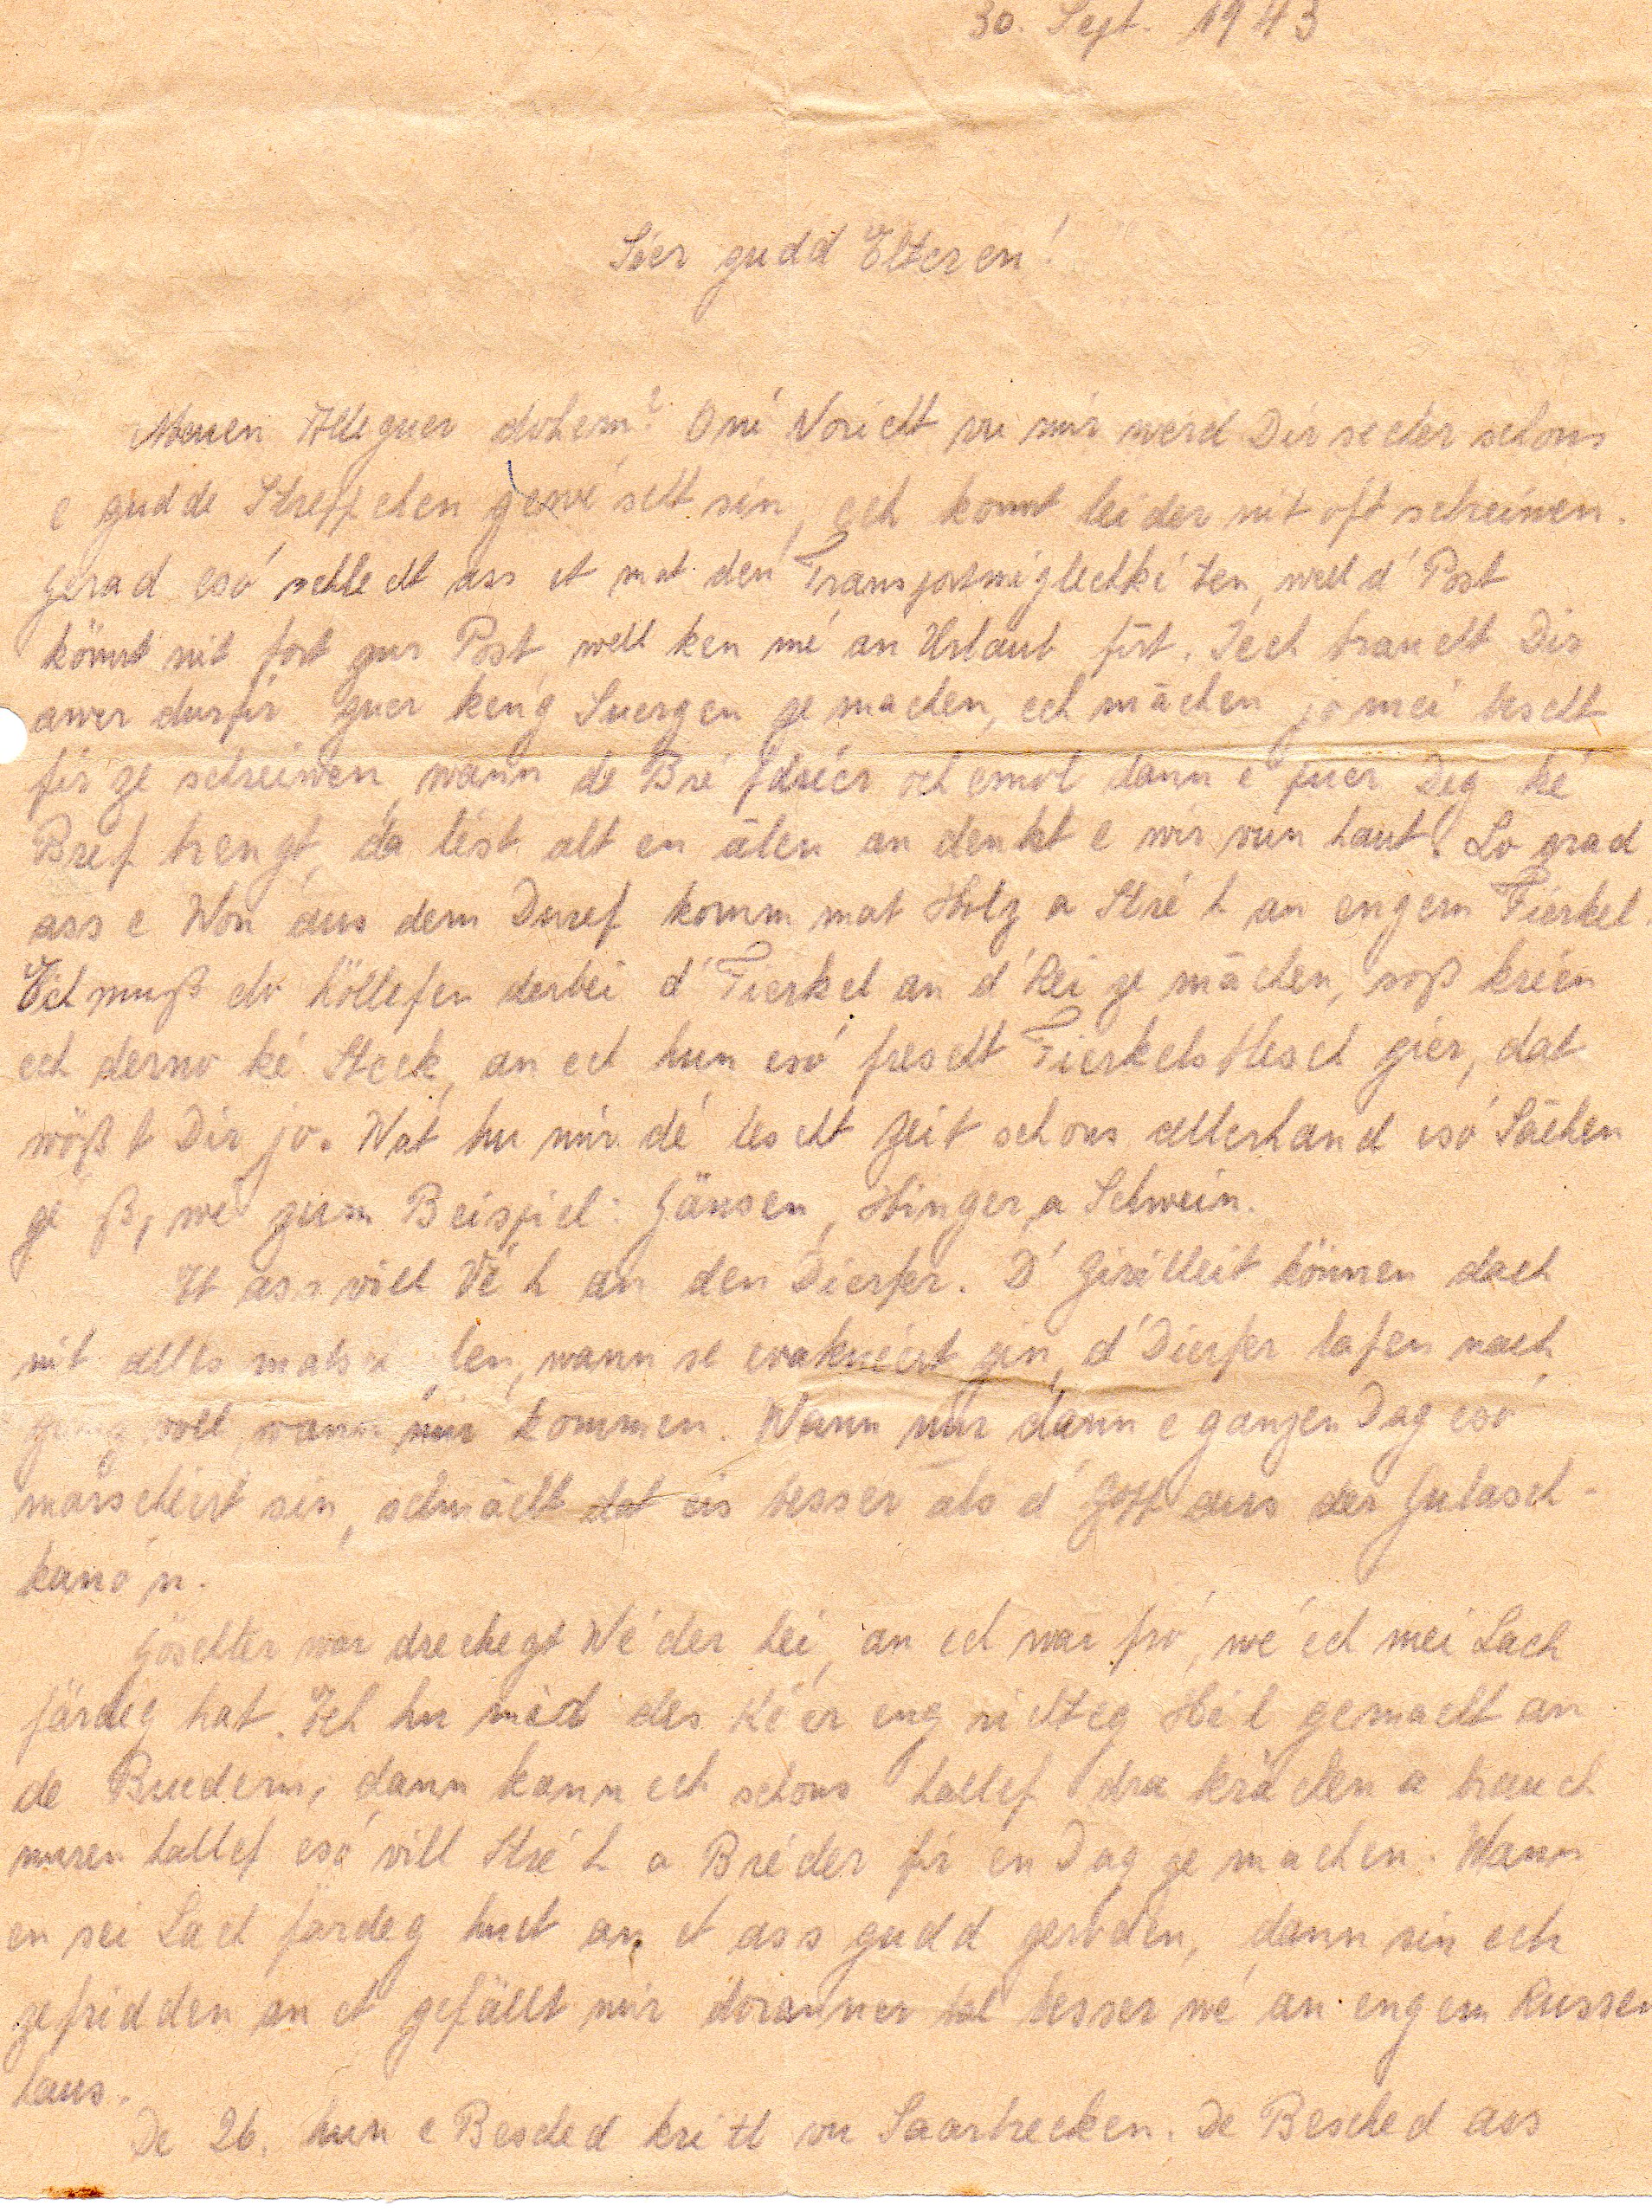 30. Sept. 1943
Léer gudd Elteren!
Moien Alleguer dohem? Oni Noricht vu mir werd Dir secher schons
e gudde Streppchen gewiescht sin, ech konnt leider nit oft schreiwen.
Gerad esó schlecht ass et mat den Transportmiglechkéten, well d'Post
könnt nit fort zur Post, well ken mé an Urlaub firt. Iech braucht Dir
awer durfir guer keng Suergen ze machen, ech māchen jo mei bescht
fir ze schreiwen, wann de Bréfdréer och emol dann e puer Deg ké
Bréf brengt, da lést alt en ālen an denkt e wir vun haut. Lo grad
ass e Won aus dem Duref komm mat Holz a Stré h an engem Fierkel.
Ech muß do höllefen derbei d'Fierkel an d'Rei ze māchen, soß kréen
ech derno ké Steck, an ech hun esó frescht Fierkelsflesch gier, dat
wößt Dir jo. Wat hu mir dé lescht Zeit schons allerhand esó Sāchen
gé ß, wé zum Beispiel: Gänsen, Hinger a Schwein.
Et ass vill Vé h an den Dierfer. D'Zivilleit können dach
nit alles mats len, wann se evakuéiert gin, d'Dierfer lafen nach
geng voll wann mir kommen. Wann mir dann e ganzen Dag esó
marschéiert sin, schmācht dat eis besser als d'Zopp aus der Gulasch-
kanó n.
Göschter war drechegt Wé der hei, an ech war fró, wé ech mei Lach
färdeg hat. Ech hu mir des Kéer eng richteg Hé l gemacht an
de Buedem, dann kann ech schons hallef dra krāchen a brauch
nuren hallef esó vill Stré h a Bréder fir en Dag ze machen. Wann
en sei Lach färdeg huet an et ass gudd geroden, dann sin ech
zefridden an et gefällt mir doranner bal besser wé an engem Russen
haus.
De 26. hun e Bescheed kritt vu Saarbrecken. De Bescheed ass